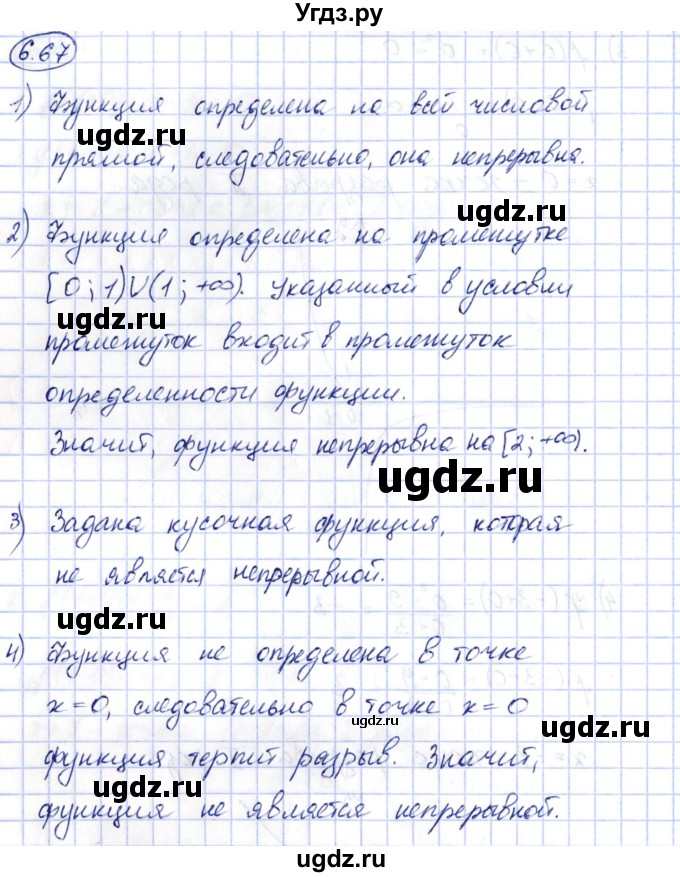 Угдз.ру
6.67
1) Функция определена на всей числовой
ugdz.ru
прямой, следовательно, она непрерывна.
ugdz.ru
2) Функция определена на промежутке
[0; 1)∪(1; +∞). Указанный в условии
ugdz.ru
промежуток входит в промежуток
определенности функции.
Значит, функция непрерывна на [2; +∞).
ugdz.ru
3) Задана кусочная функция, которая
ugdz.ru
не является непрерывной.
4) Функция не определена в точке
x=0, следовательно в точке x=0
ugdz.ru
функция терпит разрыв. Значит,
ugdz.ru
функция не является непрерывной.
ugdz.ru
ugdz.ru